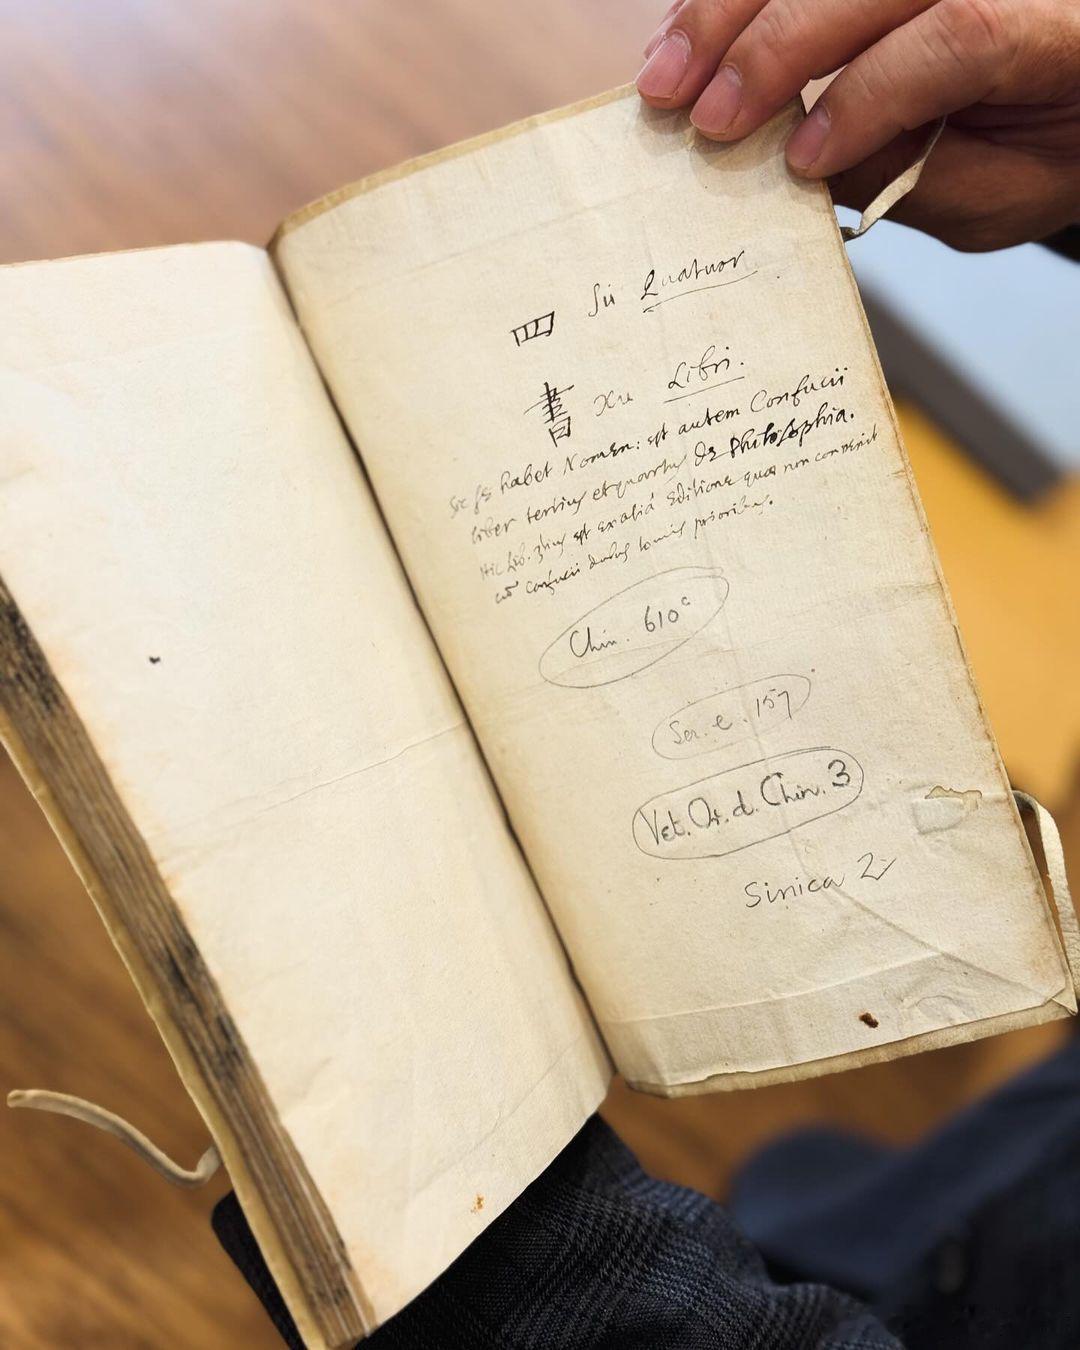 四 Su Quatuor
書 Xu Libri.
Sic habet Nomen: est autem Confucii
liber tertius et quartus de Philosophia.
Hic Lib. 3tius est ex aliâ Editione quae non convenit
cũ Confucii duobus tomis prioribus.
Chin. 610c
Ser. e. 157
Vet. Or. d. Chin. 3
Sinica 2